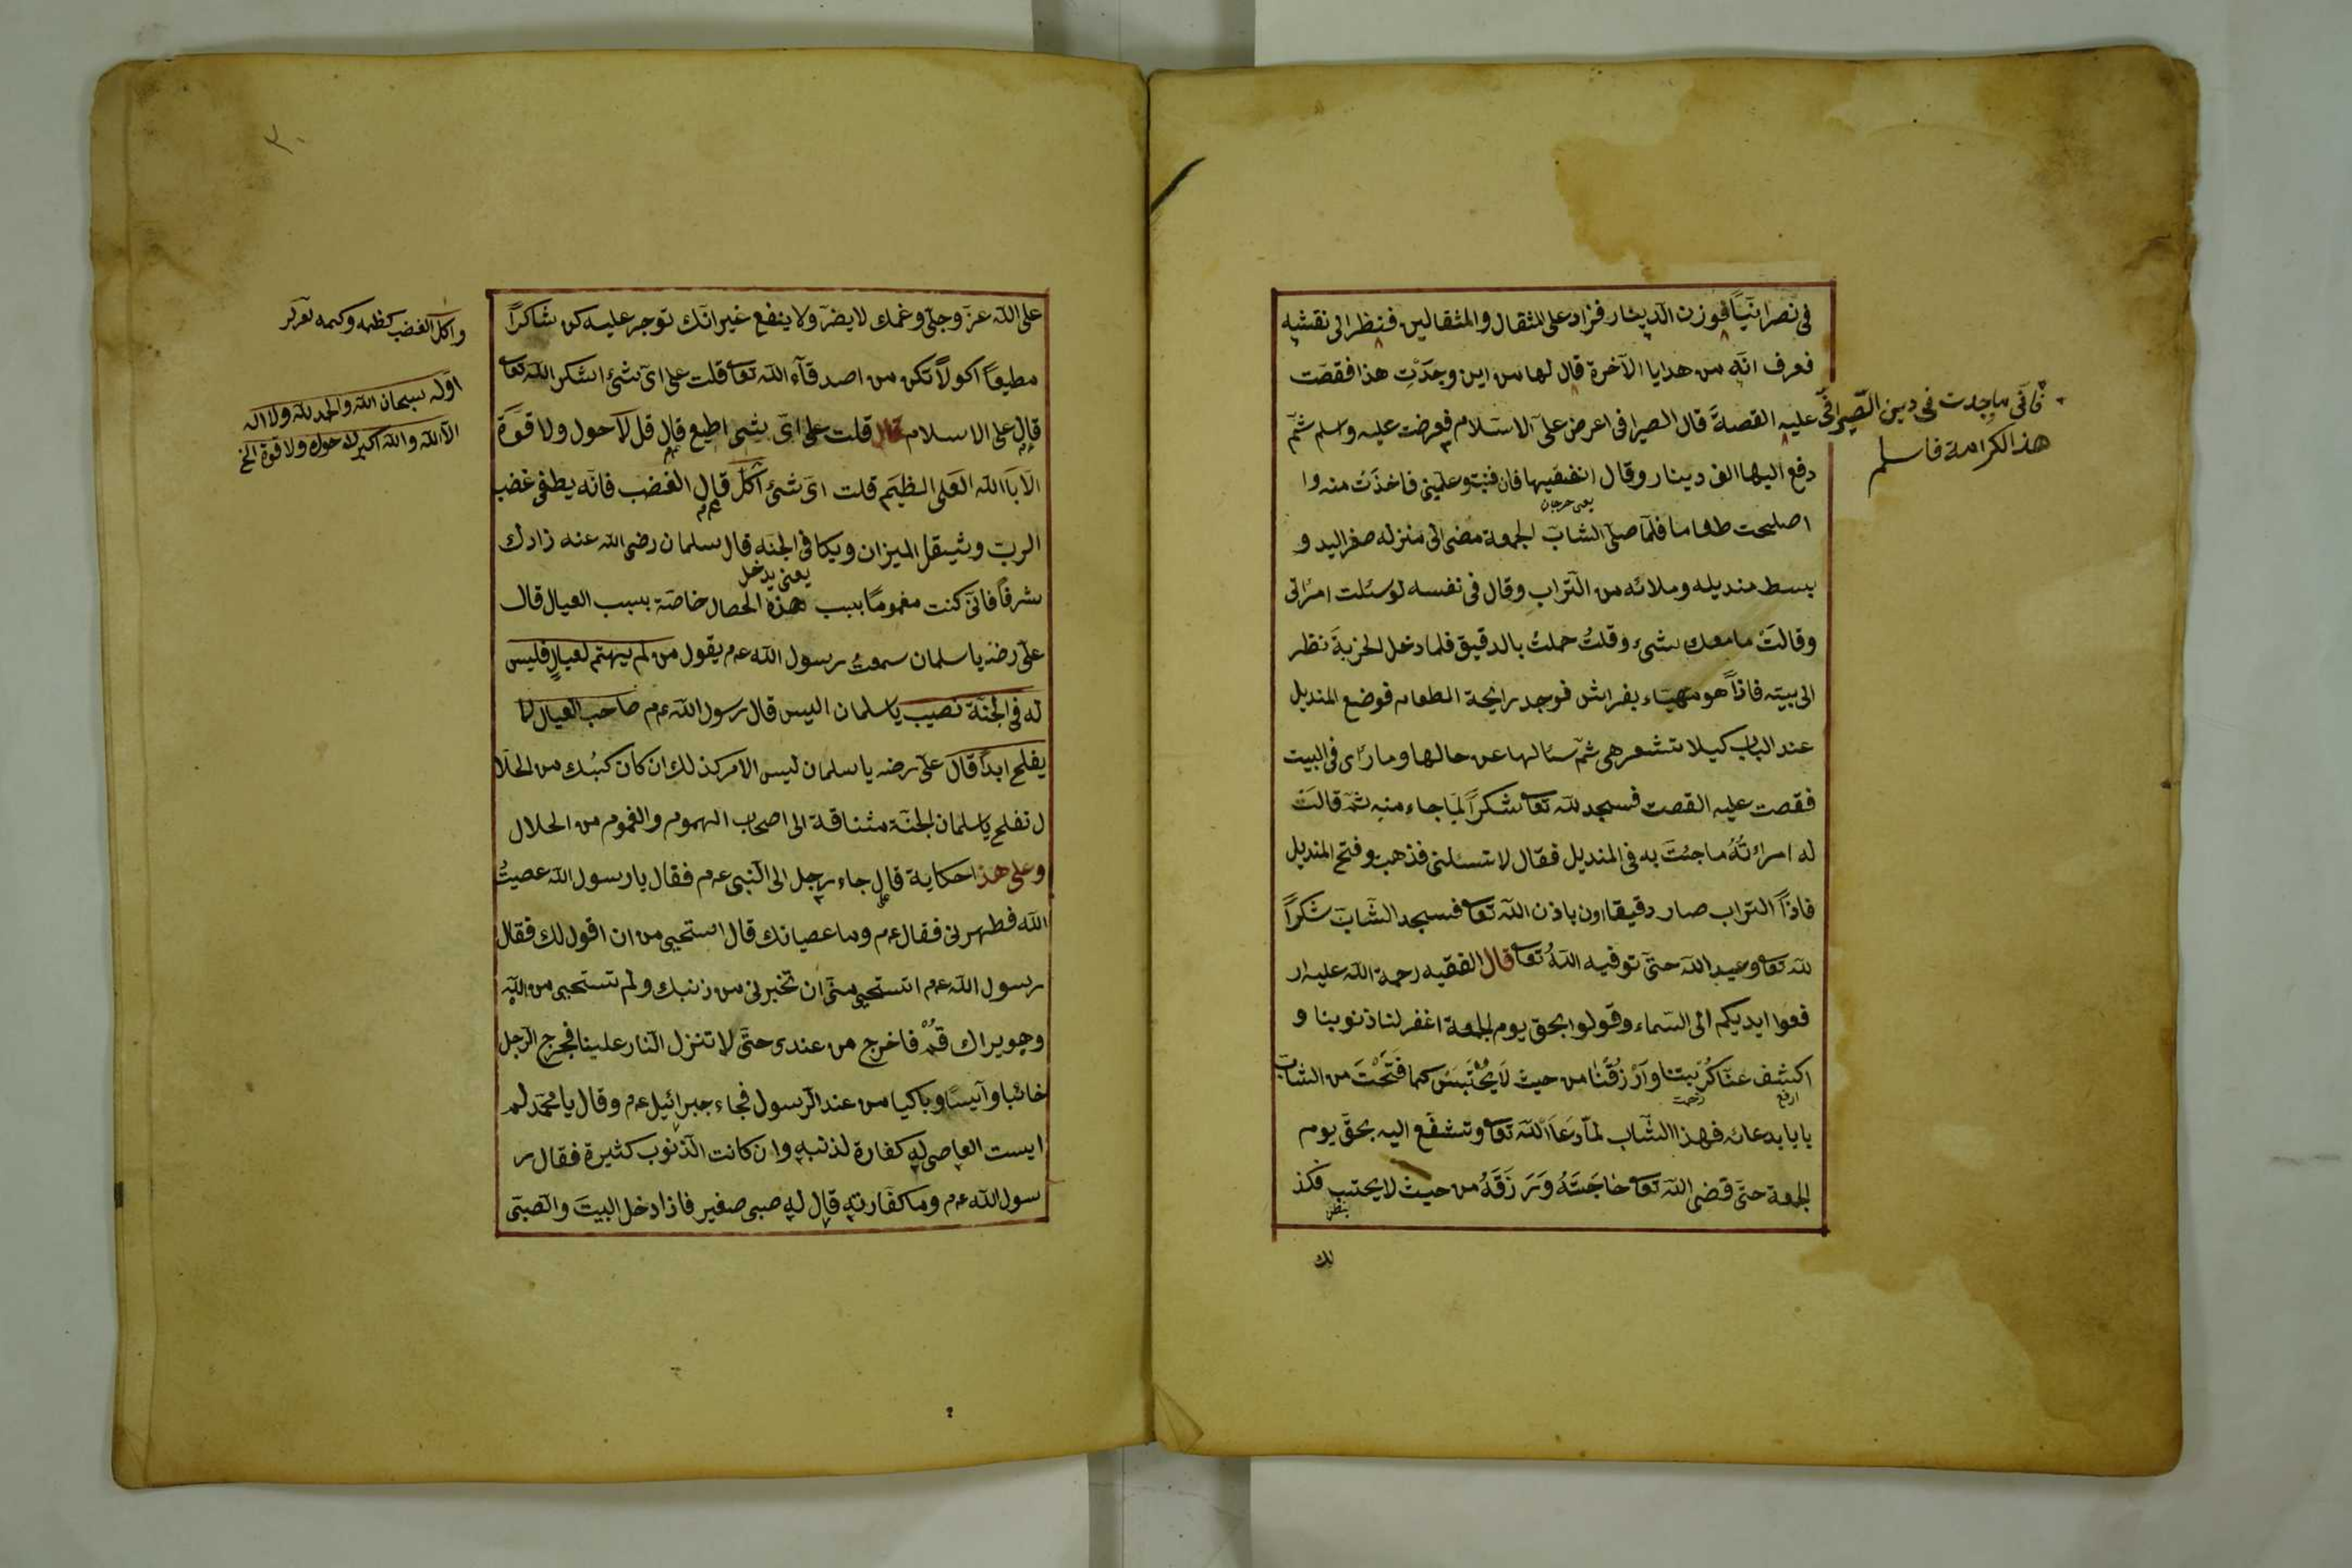 فى نصرانيّا فوزن الدينار فزاد على المثقال والمثقالين فنظر الى نقشه
فعرف انّه من هدايا الآخرة قال لها من اين وجدْتِ هذا فقصّت
عليه القصةَ قال الصيرافى اعرض علىّ الاسلام فعرضت عليه واسلم ثمّ
دفع اليها الف دينار وقال انفقيها فان فنيت فاخذَت منه وا
اصلحت طعاما فلمّا صلّى الشابّ الجمعة مضى الى منزله صفر اليد و
بسط منديله وملائه من التراب وقال فى نفسه لو سئلت امرأتى
وقالَتْ ما معك شىء وقلتُ حملتُ بالدقيق فلما دخل الخربةَ نظر
الى بيته فاذاً هو مهيّاء بفراش فوجد رايحة الطعام فوضع المنديل
عند الباب كيلا تشعر هى ثمّ سئالها عن حالها وما رأى فى البيت
فقصت عليه القصت فسجد للّه تعا شكراً لمّا جاء منه ثمّ قالَت
له امراءتُهُ ما جئتَ به فى المنديل فقال لا تسئلنى فذهب وفتح المنديل
فاذاً التراب صار دقيقا اون باذن اللّه تعا فسجد الشابّ شكراً
للّه تعا وعبد اللّه حتىّ توفيه اللّهُ تعا قال الفقيه رحمة اللّه عليه ار
فعوا ايديكم الى السّماء وقولوا بحق يوم الجمعة اغفر لنا ذنوبنا و
اكشف عنّا كُربتنا وَارْزُقْنا من حيث لَا يُحْتَبسَ كما فَتَحْتَ من الشابّ
بابا بدعائه فهذا الشّاب لمّا دَعَا اللّه تعا وتشفّع اليه بحقّ يوم
الجمعة حتىّ قضى اللّه تعا حَاجَتَهُ وَرَزَقَهُ من حيث لا يحتبب فكذ
لك
ما وجدت فى دين الصّيرافىّ
هذ الكرامة فاسلم
يعنى
ارفع
على اللّه عزّ وجلّ وغمك لا يضرّ ولا ينفع غير انّك توجر عليه كن شاكراً
مطيعاً اكولاً تكن من اصدقاء اللّه تعا قلت على اىّ شىئ اشكر اللّه تعا
قال على الاسلام قال قلت على اىّ شىء اطيع قال قل لاحول ولا قوّة
الّا باللّه العَلى الظيم قلت اىّ شىئ آكل قال الغضب فانّه يطفى غضب
الربّ وثيقل الميزان ويكا فى الجنه قال سلمان رضى اللّه عنه زادك
شرفاً فانّى كنت مغموماً ببب هذه الحصال خاصّة بسبب العيال قال
علىّ رضه يا سلمان سمعتُ رسول اللّه ع م يقول من لم يهتم لعيالٍ فليس
له فى الجنّة نصيب يا سلمان اليس قال رسول اللّه ع م صاحب العيال لا
يفلح ابداً قال علىّ رضه يا سلمان ليس الامر كذلك ان كان كبُك من الحلا
ل تفلح يا سلمان الجنّة مشتاقة الى اصحاب الهموم والغموم من الحلال
وعلى هذا حكاية قال جاء رجل الى النّبى ع م فقال يا رسول اللّه عصيتُ
اللّه فطهرنى فقال ع م وما عصيانك قال استحيى من ان اقول لك فقال
رسول اللّه ع م اتستحيى منّى ان تخبرنى من ذنبك ولم تستحيى من اللّه
وهو يراك قُمْ فاخرج من عندى حتىّ لا تنزل النّار علينا فخرج الرّجل
خائبا وآيساً وباكيا من عند الرّسول فجاء جبرائيل ع م وقال يا محمّد لم
ايست العاصى له كفارة لذنبه وان كانت الذنوب كثيرة فقال ر
سول اللّه ع م وما كفارته قال له صبى صغير فاذا دخل البيتَ والصّبى
يعنى يدخل
واكل الغضب كظمه وكتمه
اوّله سبحان اللّه والحمد للّه ولا اله
الاّ اللّه واللّه اكبر لا حول ولا قوة الخ
٣٠